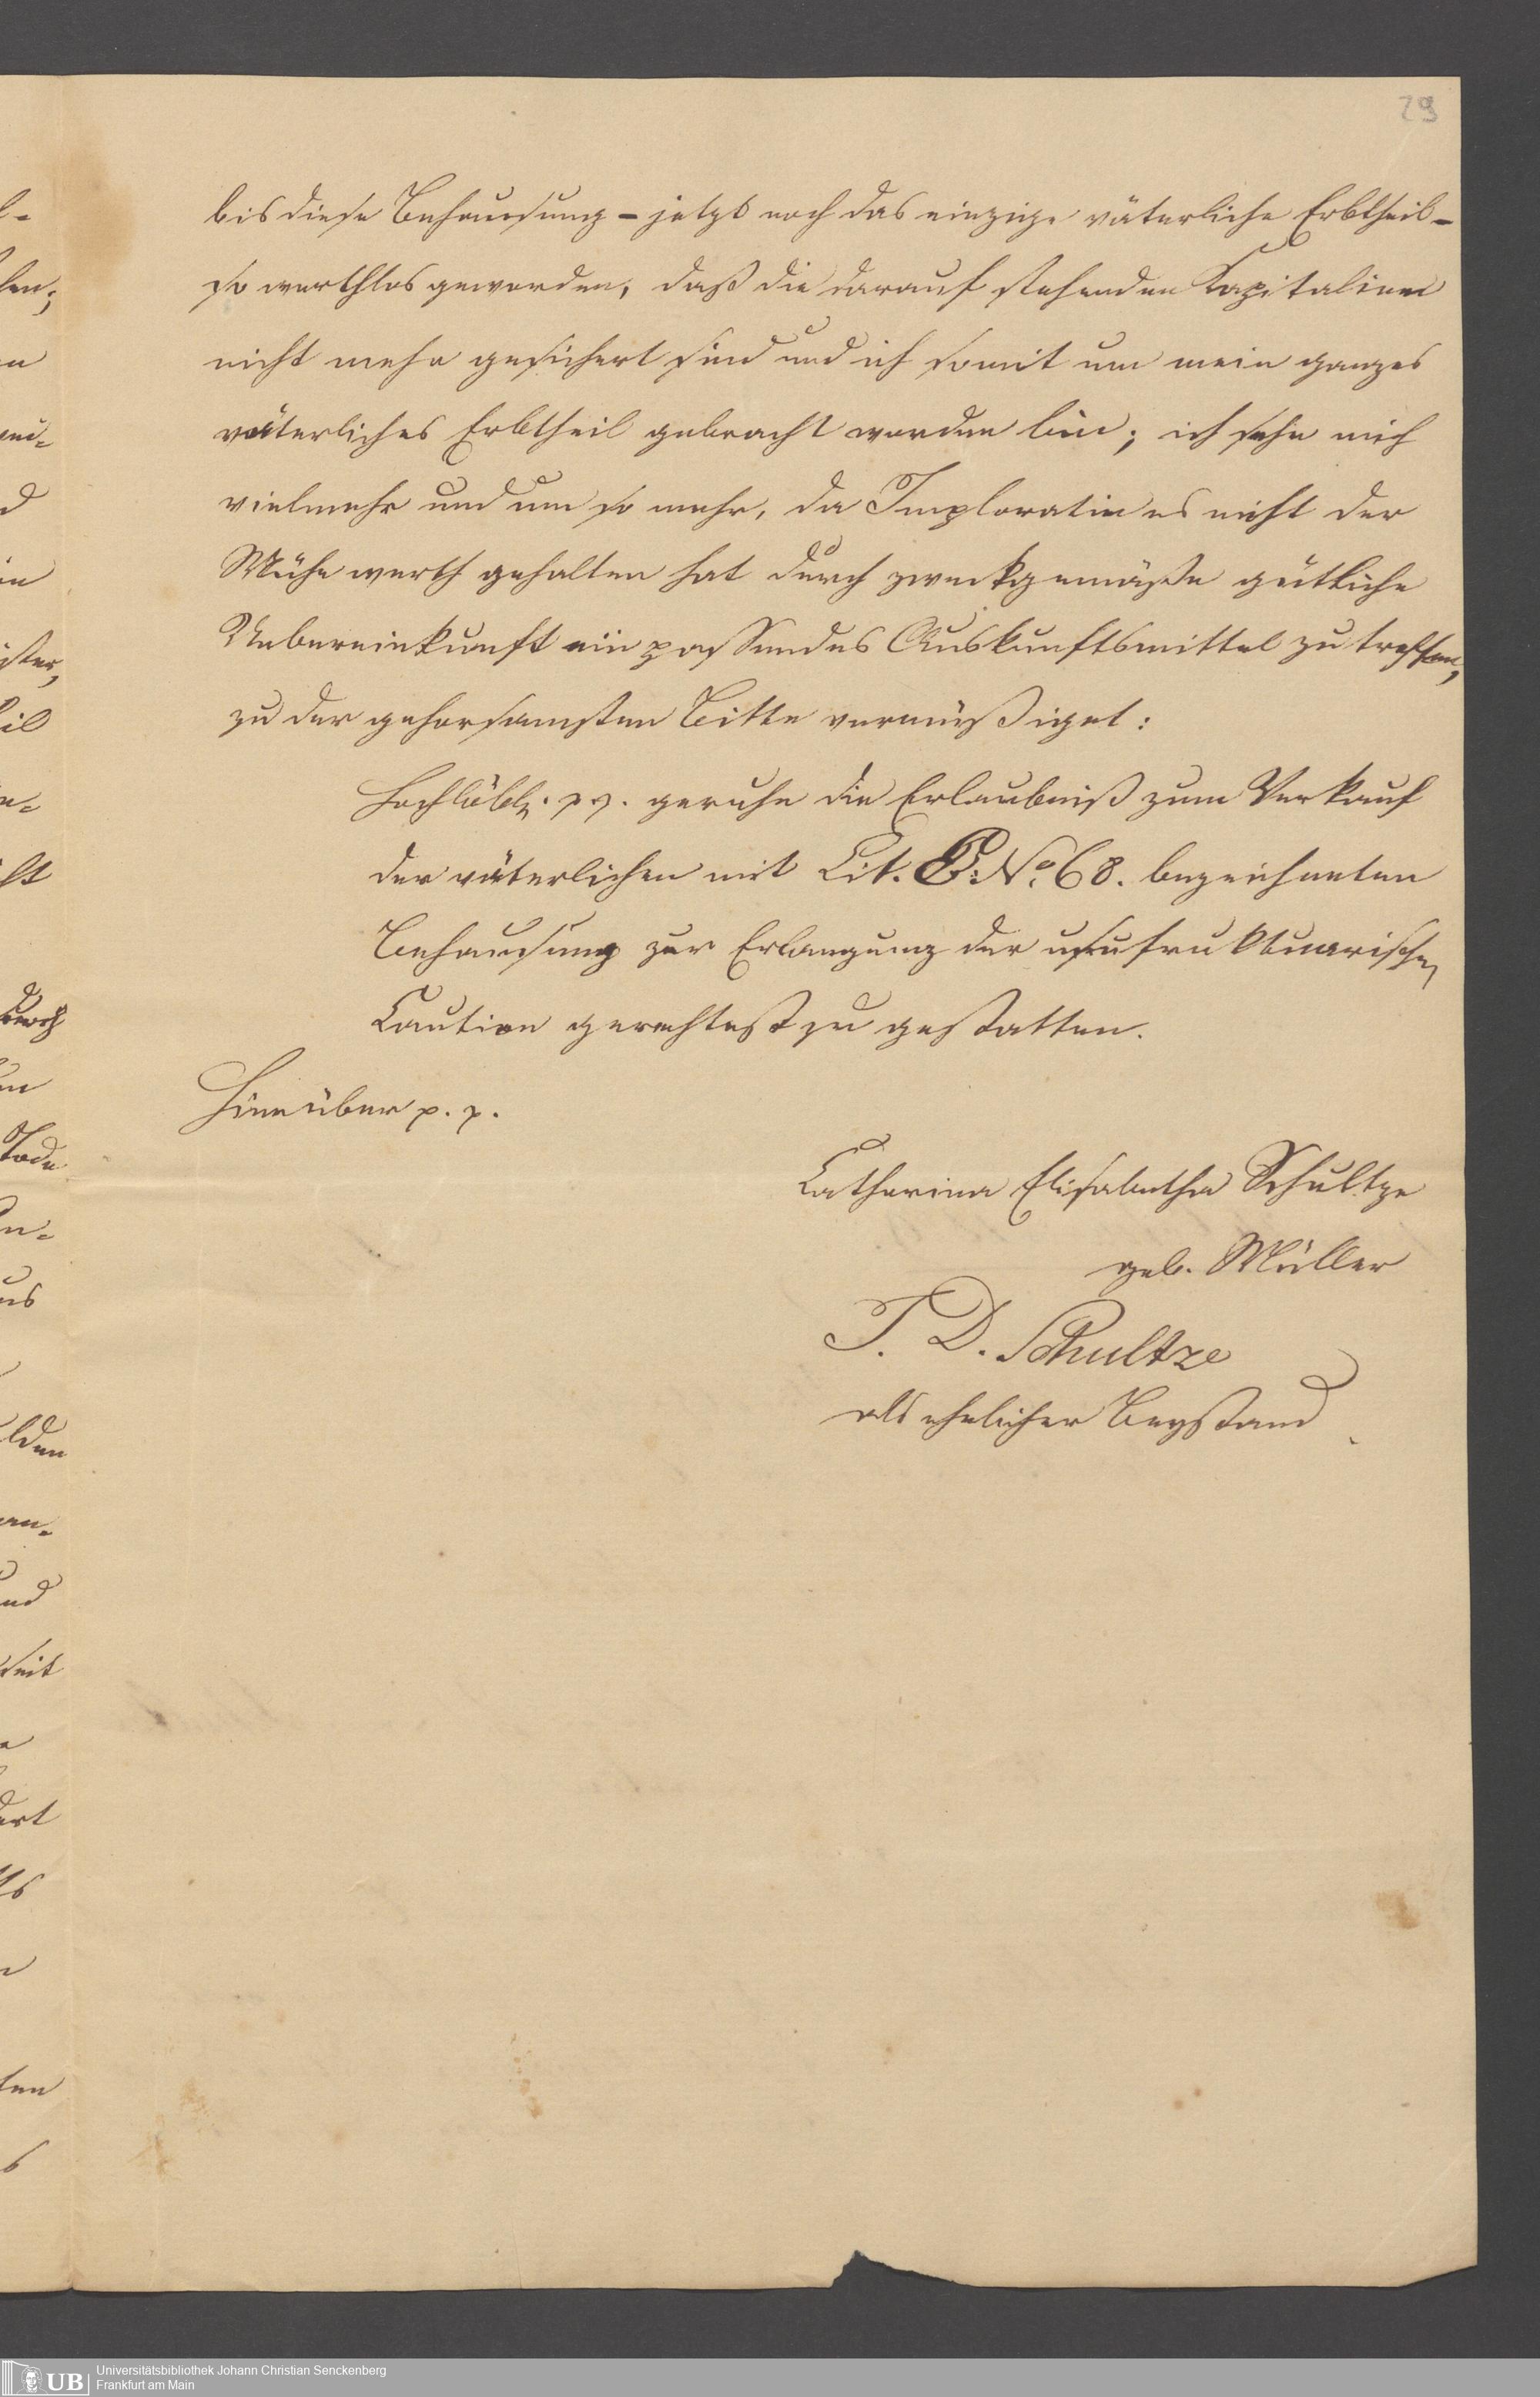 29
bis diese Behausung - jetzt noch das einzige väterliche Erbtheil -
so werthlos geworden, daß die darauf stehenden Kapitalien
nicht mehr gesichert sind und ich somit um mein ganzes
väterliches Erbtheil gebracht worden bin; ich sehe mich
vielmehr und um so mehr, da Imploratin es nicht der
Mühe werth gehalten hat durch zweckgemäße gütliche
Uebereinkunft ein passendes Auskunftsmittel zu treffen,
zu der gehorsamsten Bitte vermüßiget:
Hochlöbl. p. p. geruhe die Erlaubniß zum Verkauf
der väterlichen mit Lit. No. 68. bezeichneten
Behausung zur Erlangung der usufruktuarischen
Caution gerechtest zu gestatten.
Hierüber p. p.
Catharina Elisabetha Schultze
geb. Müller
J. D. Schultze
als ehelicher Beystand
len;
ister,
durch
Tode
und
UB
Universitätsbibliothek Johann Christian Senckenberg
Frankfurt am Main